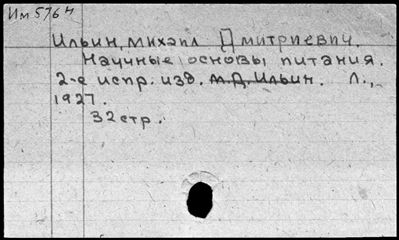 Им 5764
Ильин, михаил Дмитриевич.
Научные основы питания.
2-е испр. изд. м.Д. Ильин. Л.,
1927.
32 стр.